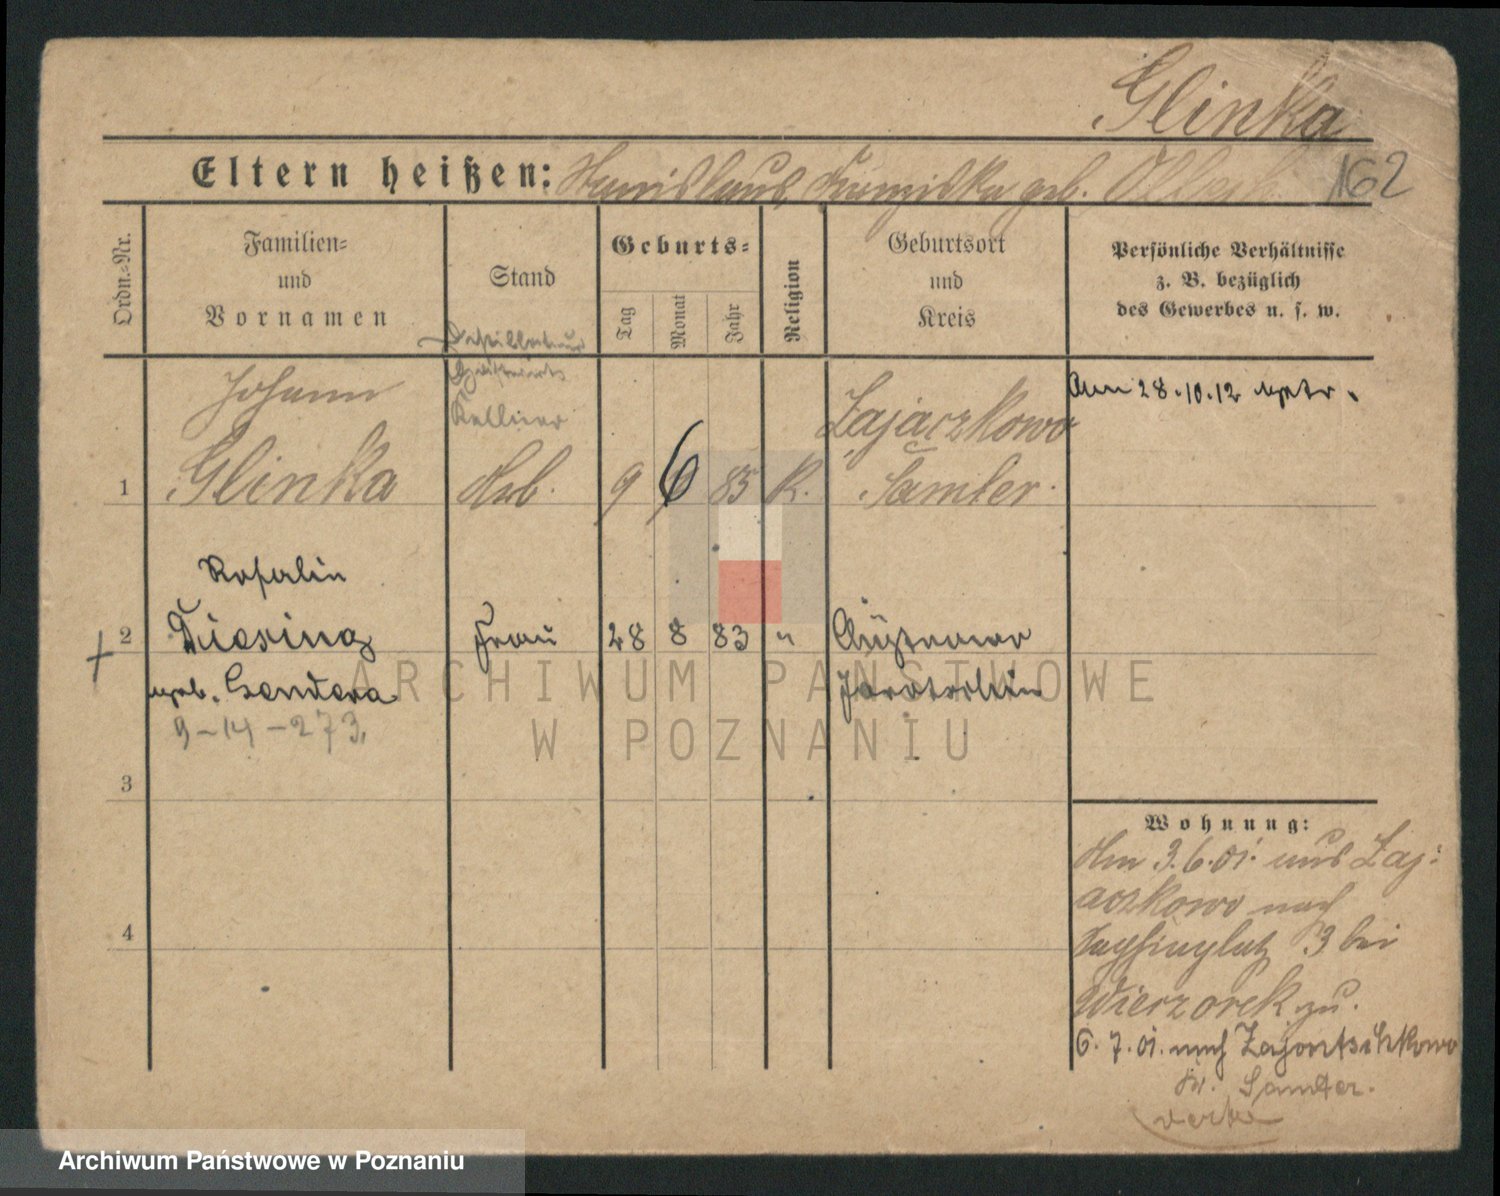 Glinka
Eltern heißen: Stanislaus, Franziska geb.
162
Ordn.-Nr.
Familien-
und
Vornamen
Stand
Geburts-
Tag
Monat
Jahr
Religion
Geburtsort
und
Kreis
Persönliche Verhältnisse
z. B. bezüglich
des Gewerbes u. s. w.
Destillateur
Kellner
Johann
Zajączkowo
Am 28.10.12
1 Glinka Arb. 9 6 85 K. Samter.
Rosalie
2 Frau 28 8 83 "
geb. Jarotschin
9-14-273,
3
4
Wohnung:
Am 3.6.01. aus Zaj-
ączkowo nach
3 bei
Wierzorek zu.
6.7.01. nach Zajontschkowo
Kr. Samter.
ARCHIWUM PAŃSTWOWE
W POZNANIU
Archiwum Państwowe w Poznaniu